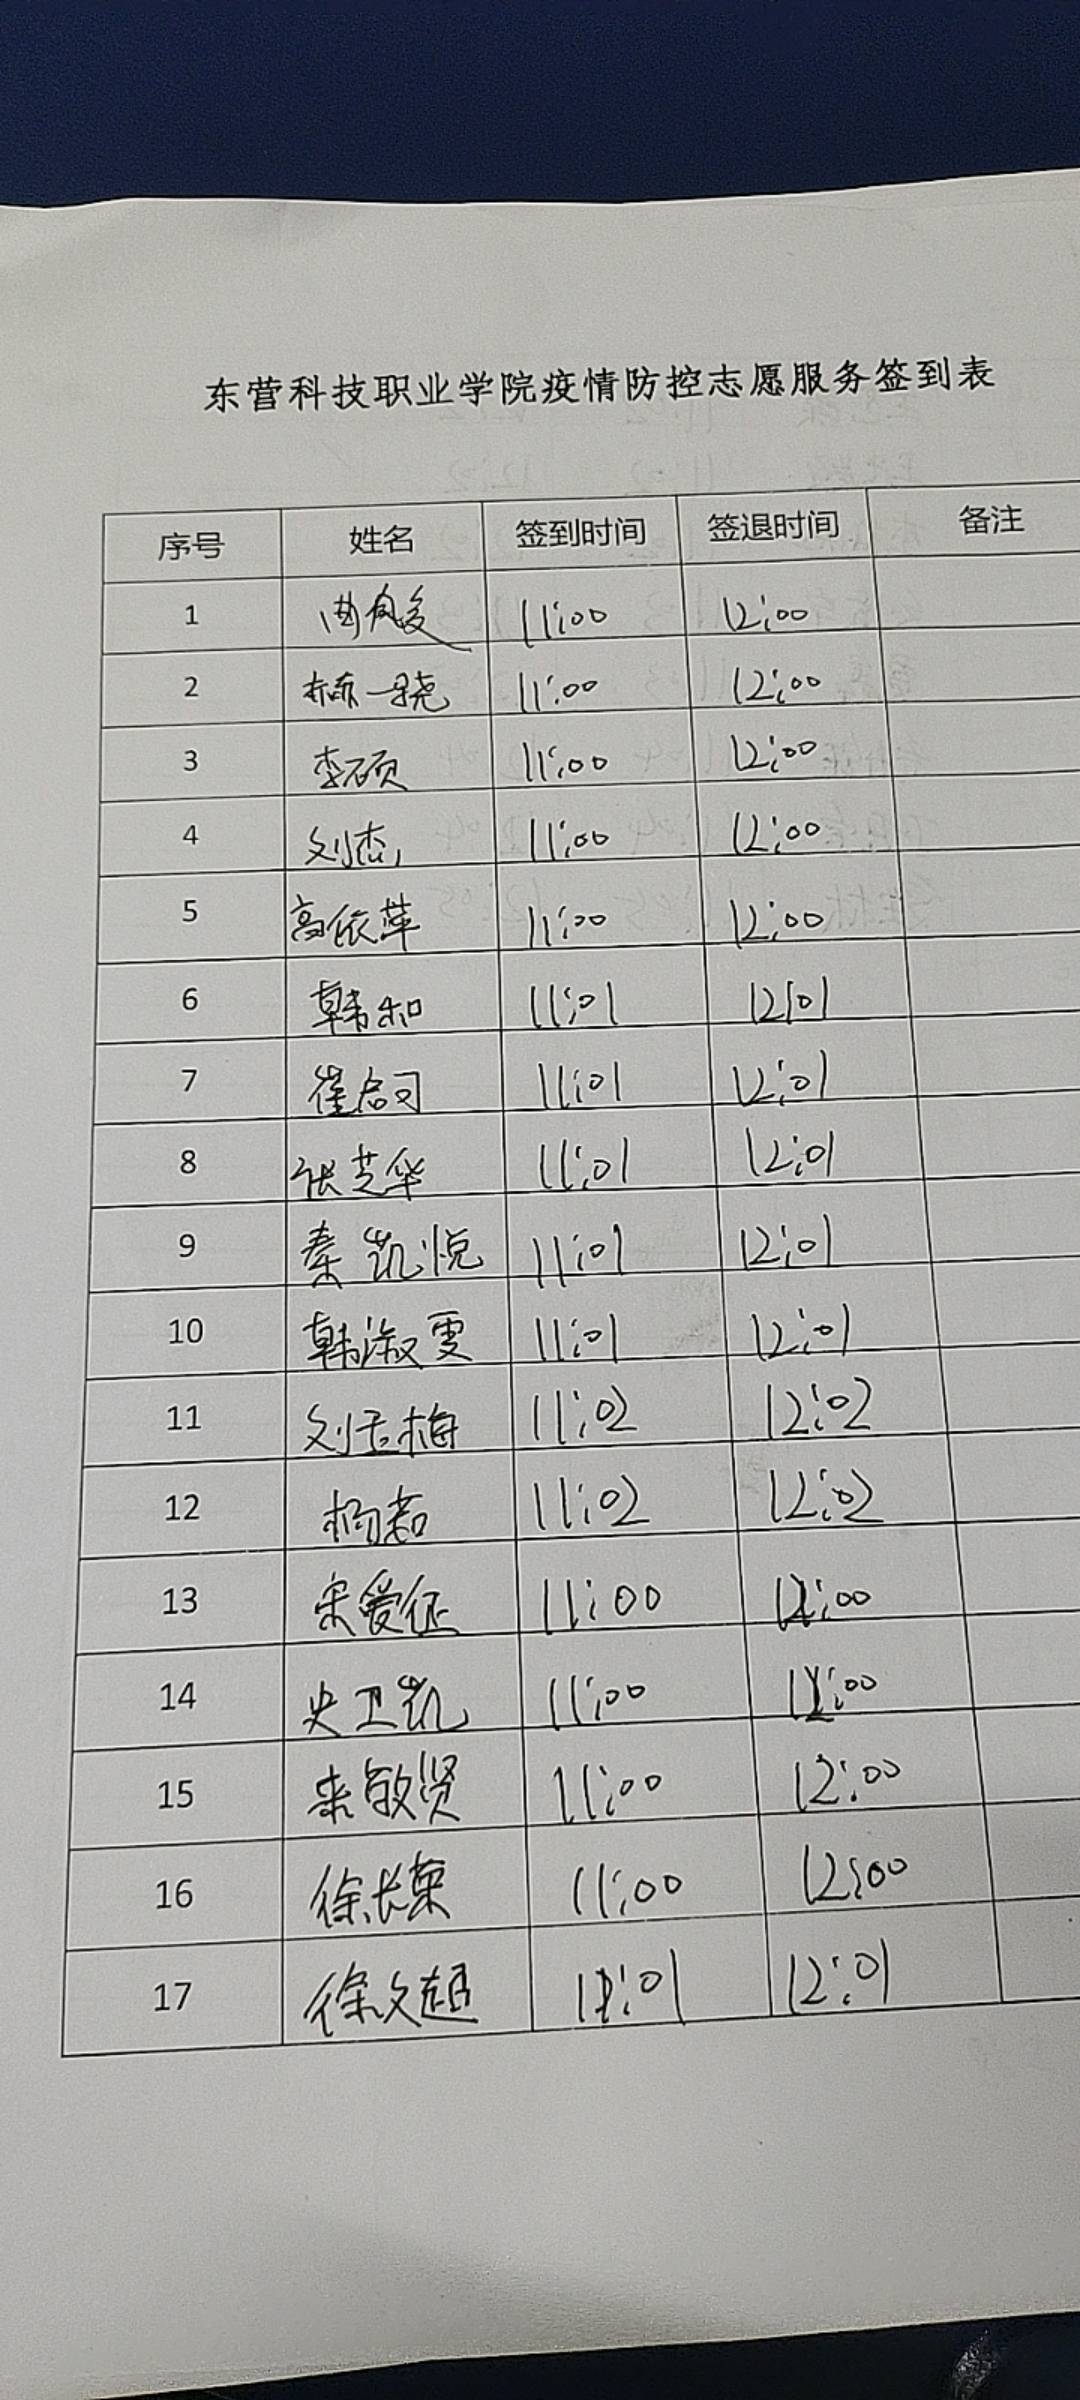 东营科技职业学院疫情防控志愿服务签到表
序号 姓名 签到时间 签退时间 备注
1 11:00 12:00
2 11:00 12:00
3 李硕 11:00 12:00
4 刘杰 11:00 12:00
5 高依萍 11:00 12:00
6 韩和 11:01 12:01
7 崔启司 11:01 12:01
8 张芝华 11:01 12:01
9 秦凯悦 11:01 12:01
10 韩淑雯 11:01 12:01
11 刘玉梅 11:02 12:02
12 杨若 11:02 12:02
13 宋爱征 11:00 12:00
14 史卫凯 11:00 12:00
15 来敏贤 11:00 12:00
16 徐长荣 11:00 12:00
17 徐文超 11:01 12:01